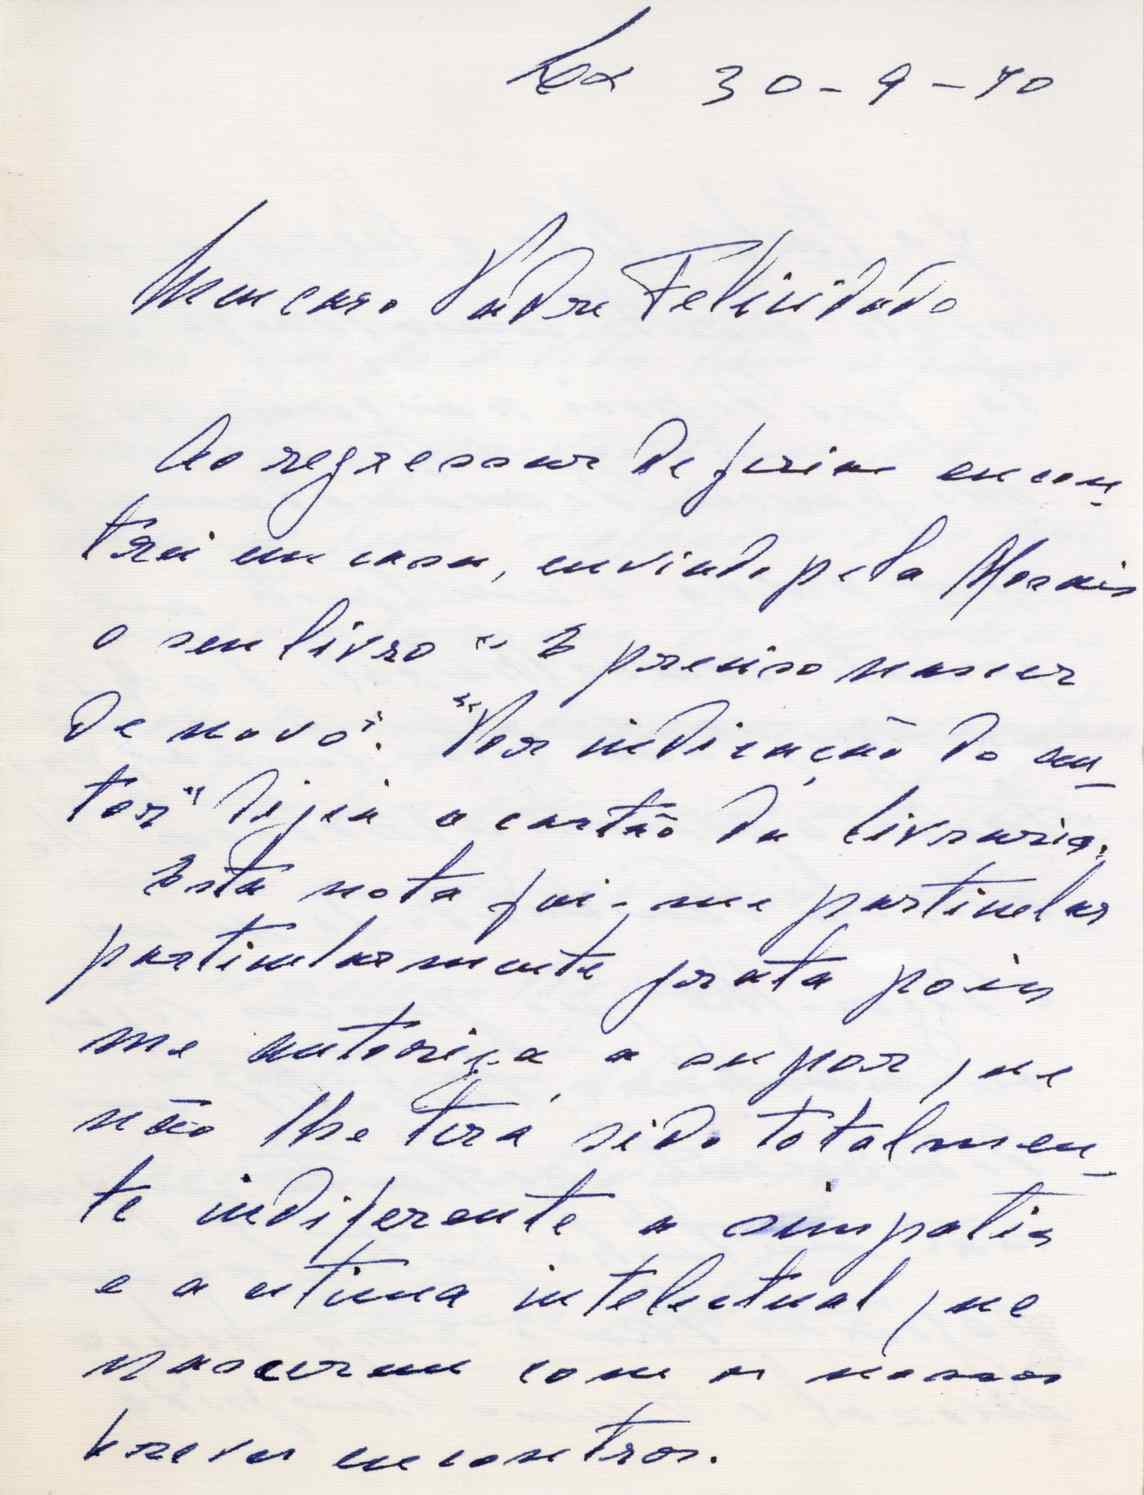 Lx 30-9-70
Meu caro Padre Felicidade
Ao regressar de férias encon-
trei em casa, enviado pela Morais
o seu livro "É preciso nascer
de novo". "Por indicação do au-
tor" dizia o cartão da livraria.
Esta nota foi-me particular
particularmente grata pois
me autoriza a supor que
não lhe terá sido totalmen-
te indiferente a simpatia
e a estima intelectual que
nasceram com os nossos
breves encontros.